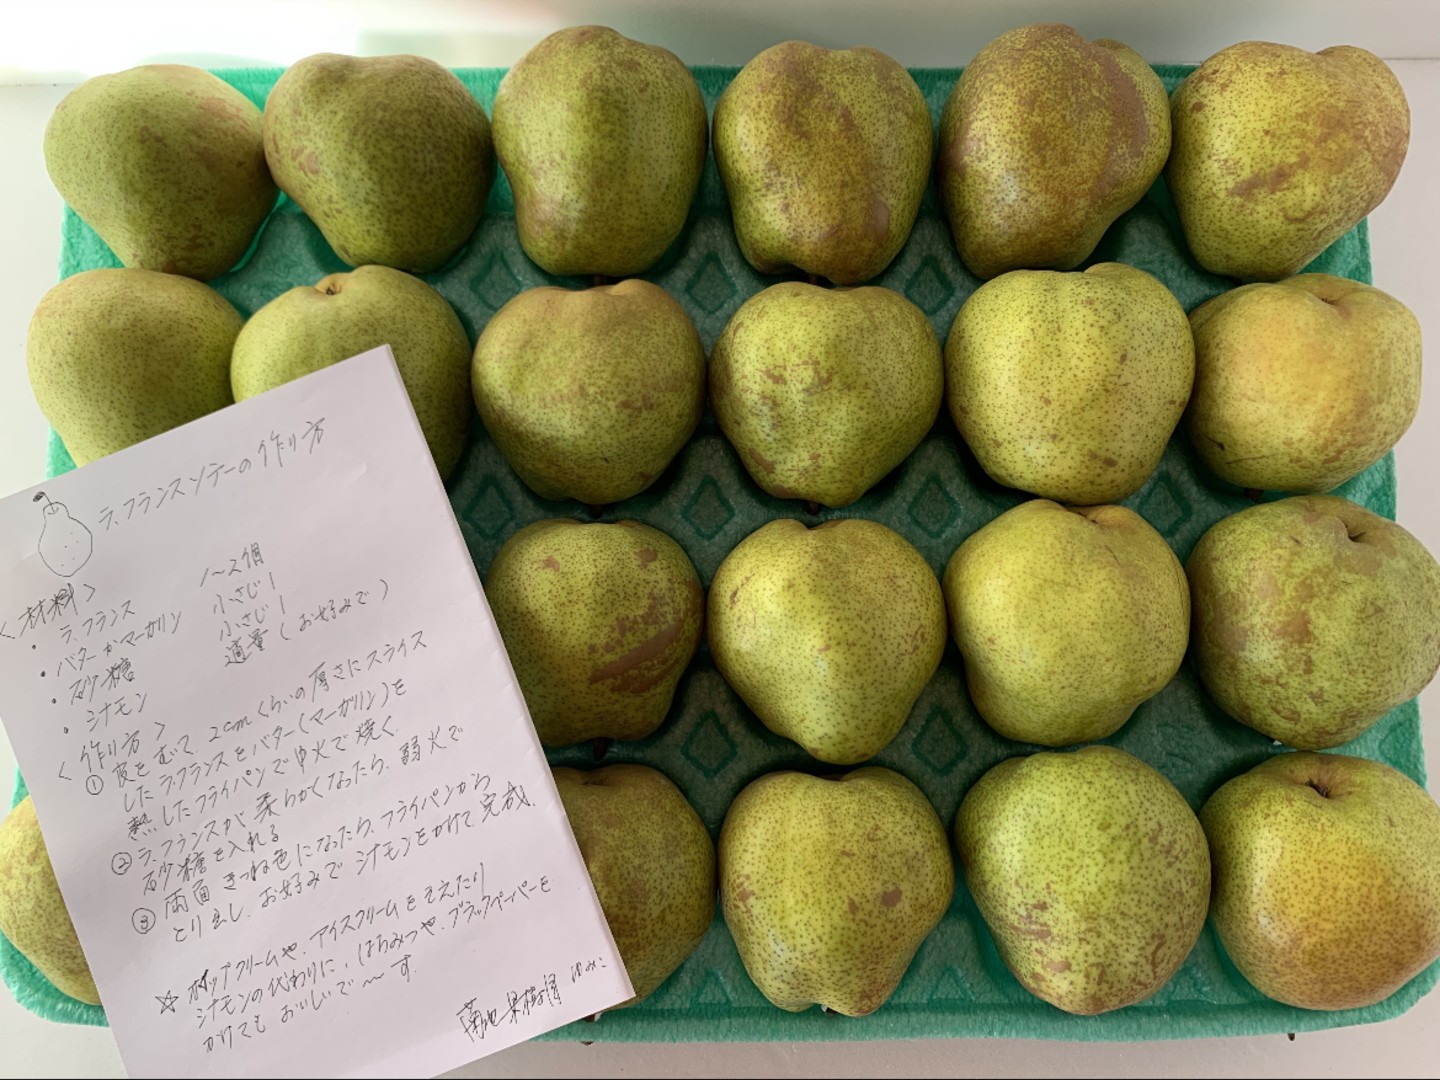 ラ・フランスソテーの作り方
<材料>
・ラ・フランス 1〜2個
・バターかマーガリン 小さじ1
・砂糖 小さじ1
・シナモン 適量(お好みで)
<作り方>
① 皮をむいて、2cmくらいの厚さにスライス
したラ・フランスをバター(マーガリン)を
熱したフライパンで中火で焼く。
② ラ・フランスが柔らかくなったら、弱火で
砂糖を入れる
③ 両面きつね色になったら、フライパンから
とり出し、お好みでシナモンをかけて完成。
☆ ホイップクリームや、アイスクリームをそえたり
シナモンの代わりに、はちみつや、ブラックペーパーを
かけてもおいしいで〜〜す。
菊地果樹園